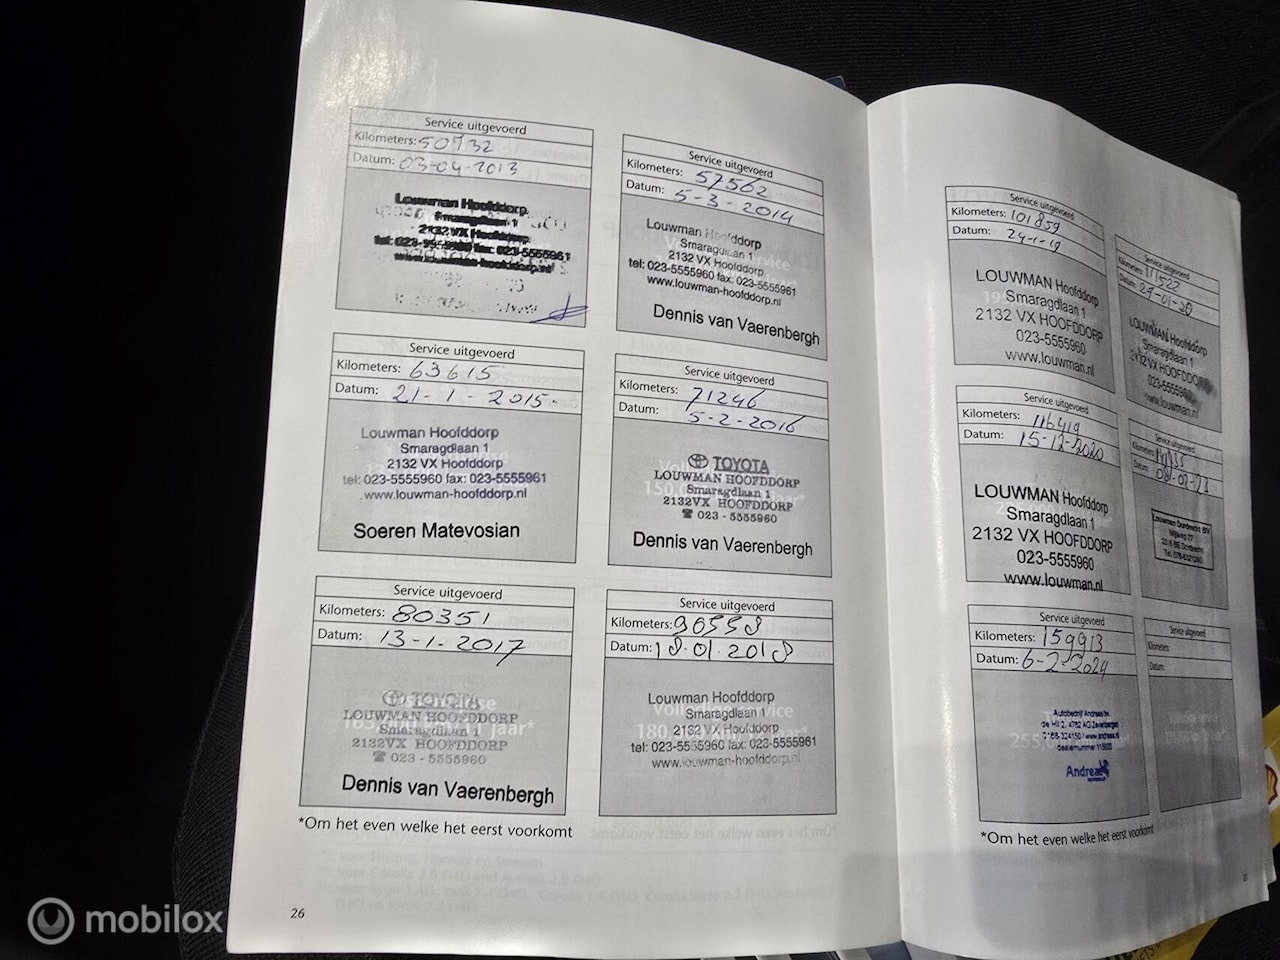 Service uitgevoerd
Kilometers: 50932
Datum: 03-04-2013
Louwman Hoofddorp
Smaragdlaan 1
2132 VX Hoofddorp
www.louwman-hoofddorp.nl
Service uitgevoerd
Kilometers: 57562
Datum: 5-3-2014
Louwman Hoofddorp
Smaragdlaan 1
2132 VX Hoofddorp
tel: 023-5555960 fax: 023-5555961
www.louwman-hoofddorp.nl
Dennis van Vaerenbergh
Service uitgevoerd
Kilometers: 63615
Datum: 21-1-2015.
Louwman Hoofddorp
Smaragdlaan 1
2132 VX Hoofddorp
tel: 023-5555960 fax: 023-5555961
www.louwman-hoofddorp.nl
Soeren Matevosian
Service uitgevoerd
Kilometers: 71246
Datum: 5-2-2016
TOYOTA
LOUWMAN HOOFDDORP
Smaragdlaan 1
2132VX HOOFDDORP
☎ 023 - 5555960
Dennis van Vaerenbergh
Service uitgevoerd
Kilometers: 80351
Datum: 13-1-2017
TOYOTA
LOUWMAN HOOFDDORP
Smaragdlaan 1
2132VX HOOFDDORP
☎ 023 - 5555960
Dennis van Vaerenbergh
Service uitgevoerd
Kilometers: 90558
Datum: 18-01-2018
Louwman Hoofddorp
Smaragdlaan 1
2132 VX Hoofddorp
tel: 023-5555960 fax: 023-5555961
www.louwman-hoofddorp.nl
*Om het even welke het eerst voorkomt
26
Service uitgevoerd
Kilometers: 101859
Datum: 24-1-19
LOUWMAN Hoofddorp
Smaragdlaan 1
2132 VX HOOFDDORP
023-5555960
www.louwman.nl
Service uitgevoerd
Kilometers: 111522
Datum: 29-01-20
LOUWMAN Hoofddorp
Smaragdlaan 1
2132 VX HOOFDDORP
023-5555960
www.louwman.nl
Service uitgevoerd
Kilometers: 116419
Datum: 15-12-2020
LOUWMAN Hoofddorp
Smaragdlaan 1
2132 VX HOOFDDORP
023-5555960
www.louwman.nl
Service uitgevoerd
Kilometers:
Datum:
Louwman Dordrecht BV
Service uitgevoerd
Kilometers: 159913
Datum: 6-2-2024
Autobedrijf Andreas bv.
de Hil 2, 4762 AG Zevenbergen
0168-324150 / www.andreas.nl
dealernummer 115620
Andreas
Service uitgevoerd
Kilometers:
Datum:
*Om het even welke het eerst voorkomt
mobilox